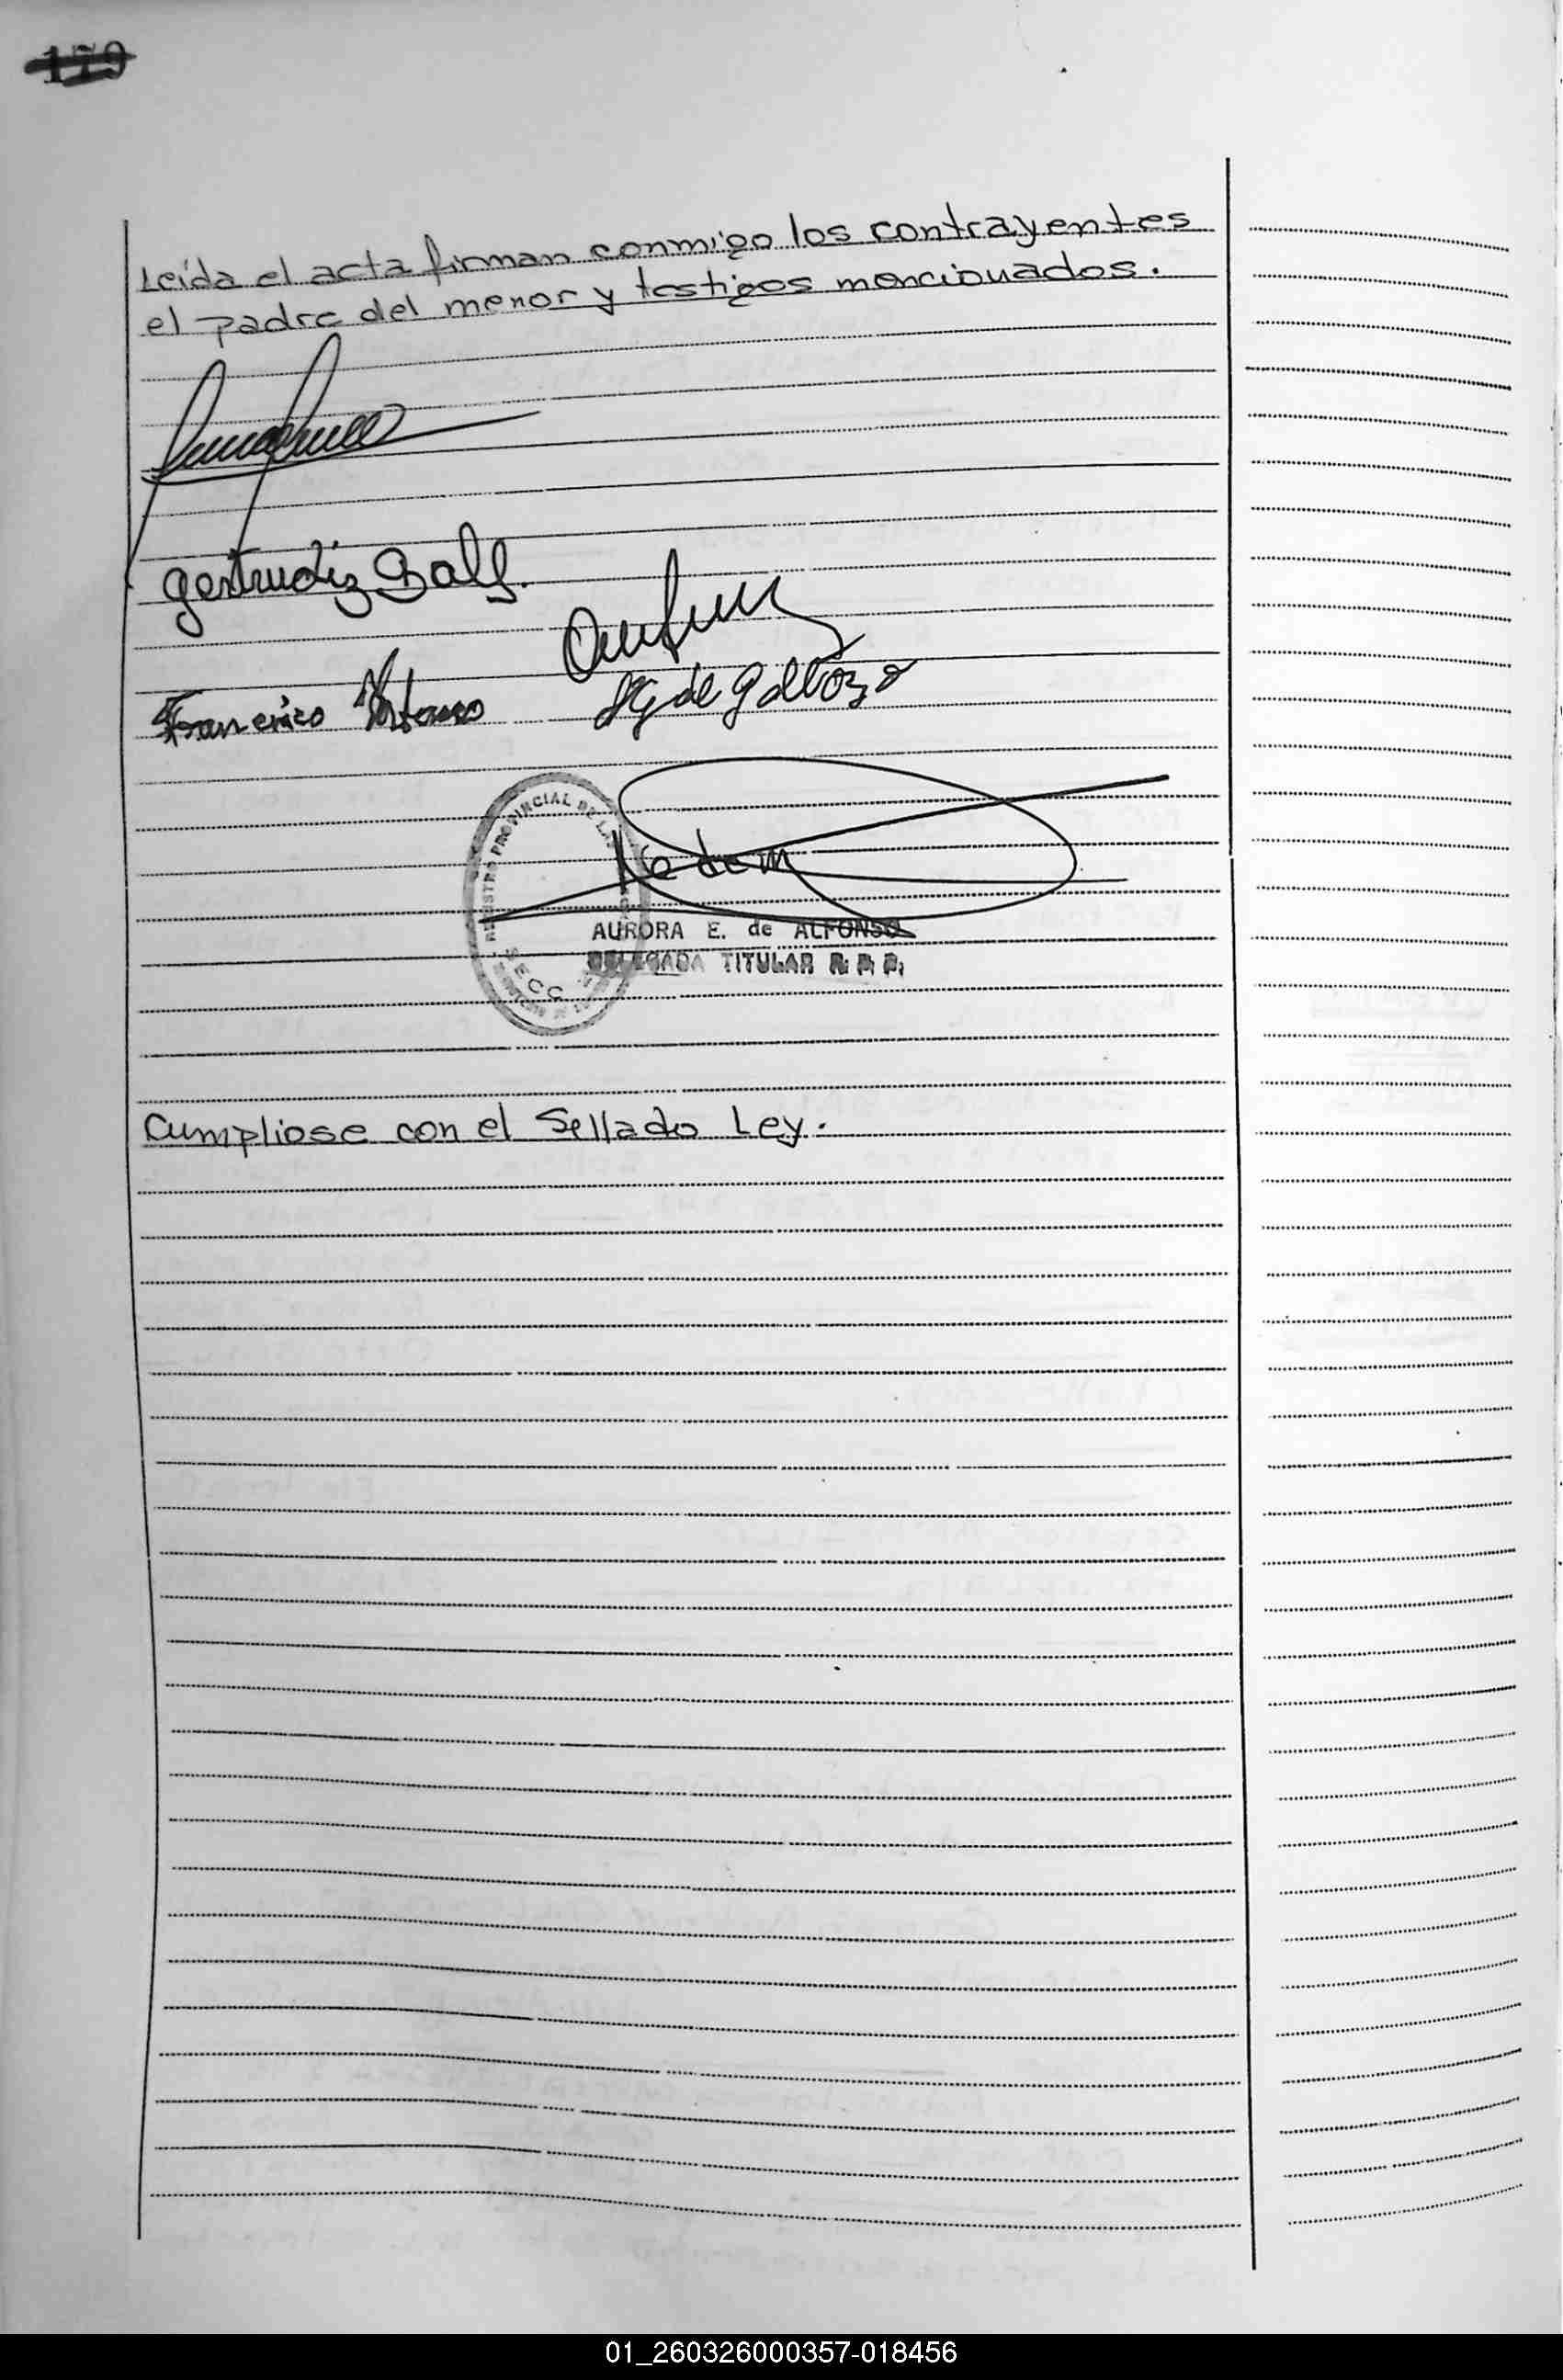 179
Leída el acta firman conmigo los contrayentes
el padre del menor y testigos mencionados.
Gertrudiz Galf.
Francisco
de Galloza
REGISTRO PROVINCIAL DE LAS
SECC
AURORA E. de ALFONSO
DELEGADA TITULAR R. P. P.
Cumpliose con el Sellado Ley.
01_260326000357-018456